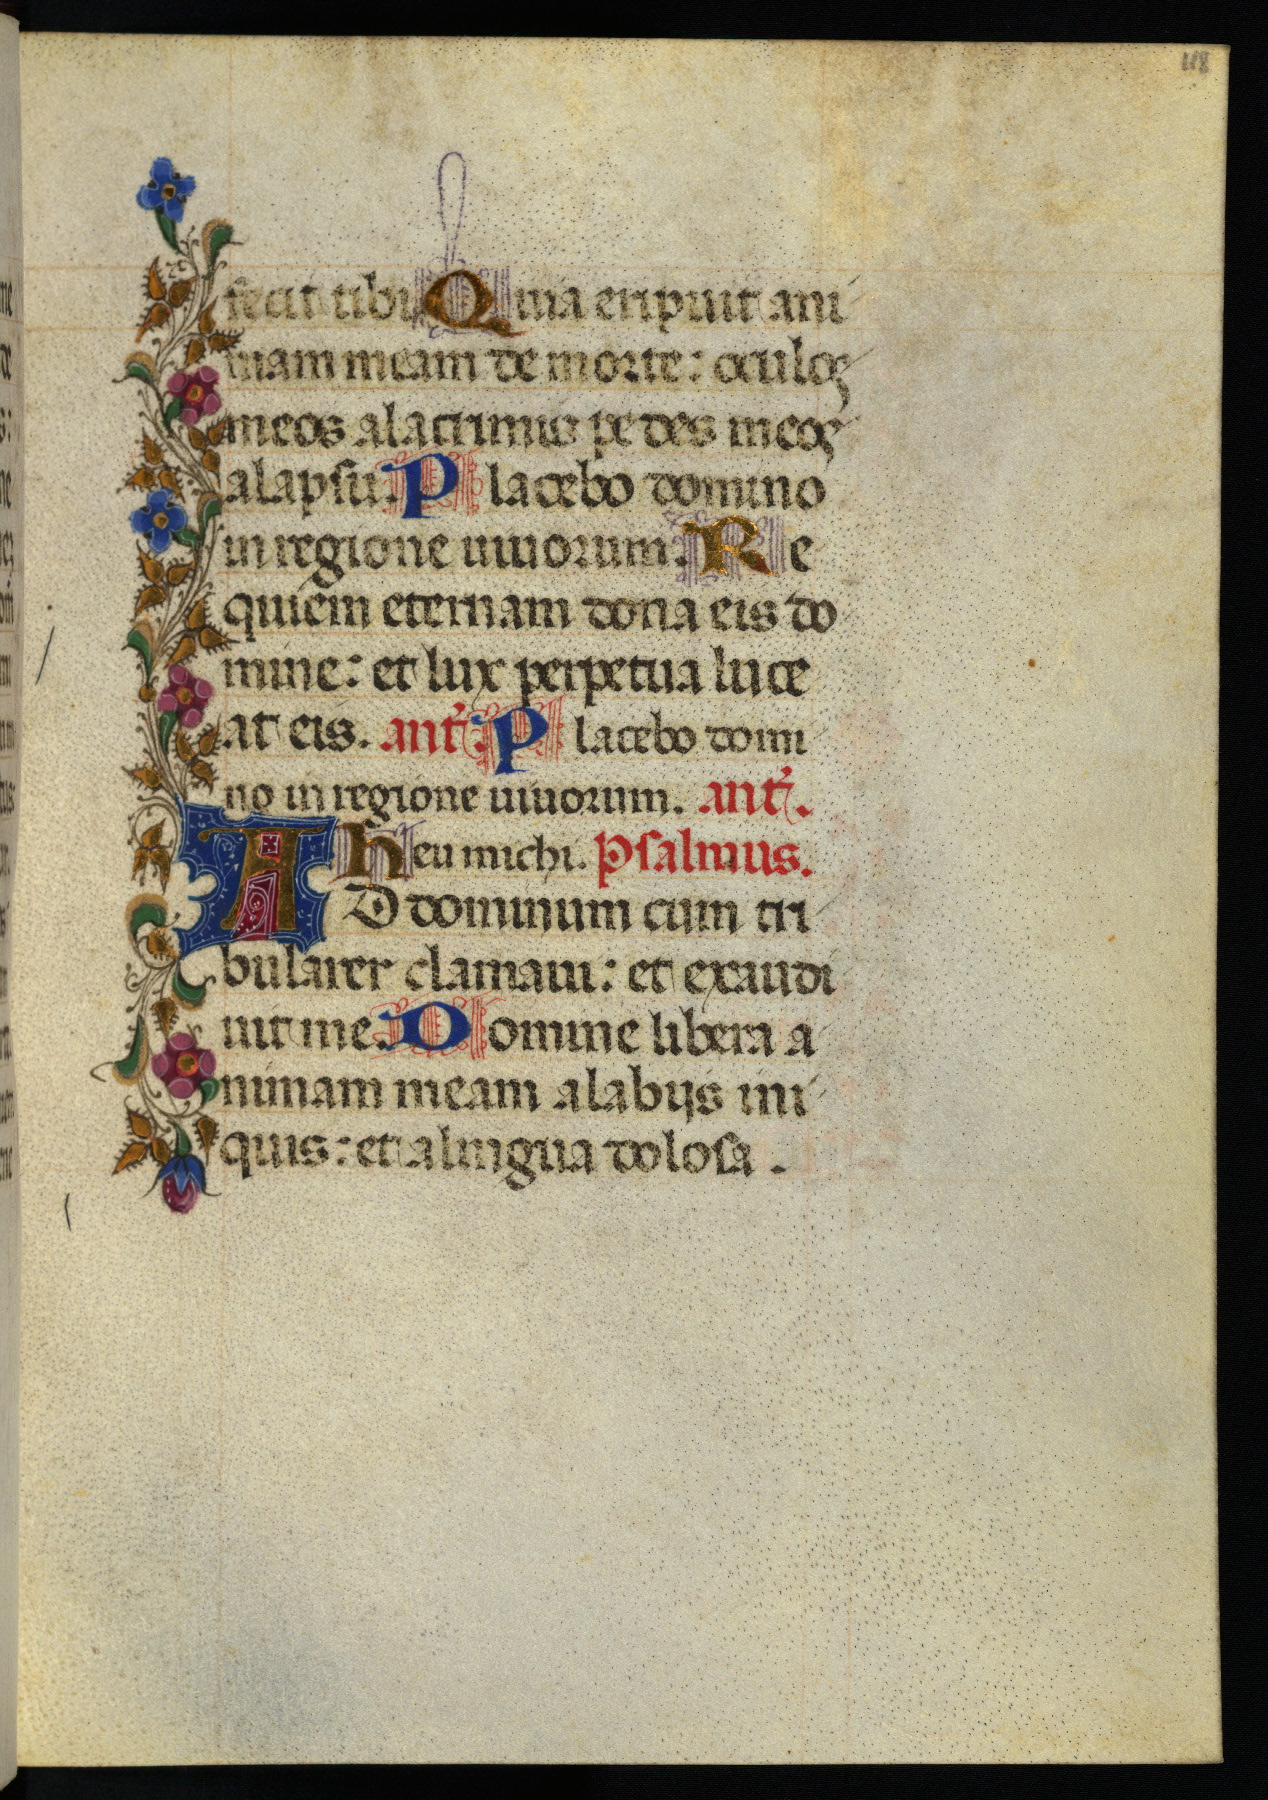 118
fecit tibi. Quia eripuit ani
mam meam de morte: oculos
meos a lacrimis pedes meos
a lapsu. Placebo domino
in regione uiuorum. Re
quiem eternam dona eis do
mine: et lux perpetua luce
at eis. ant̃. Placebo domi
no in regione uiuorum. ant̃.
Heu michi. Psalmus.
AD dominum cum tri
bularer clamaui: et exaudi
uit me. Domine libera a
nimam meam a labijs ini
quis: et a lingua dolosa.